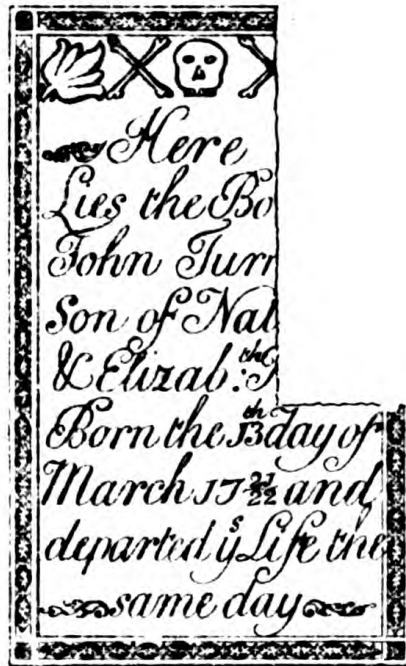 Here
Lies the Bo
John Turn
Son of Nat
& Elizab:th
Born the 13th day of
March 17 21/22 and
departed ys Life the
same day